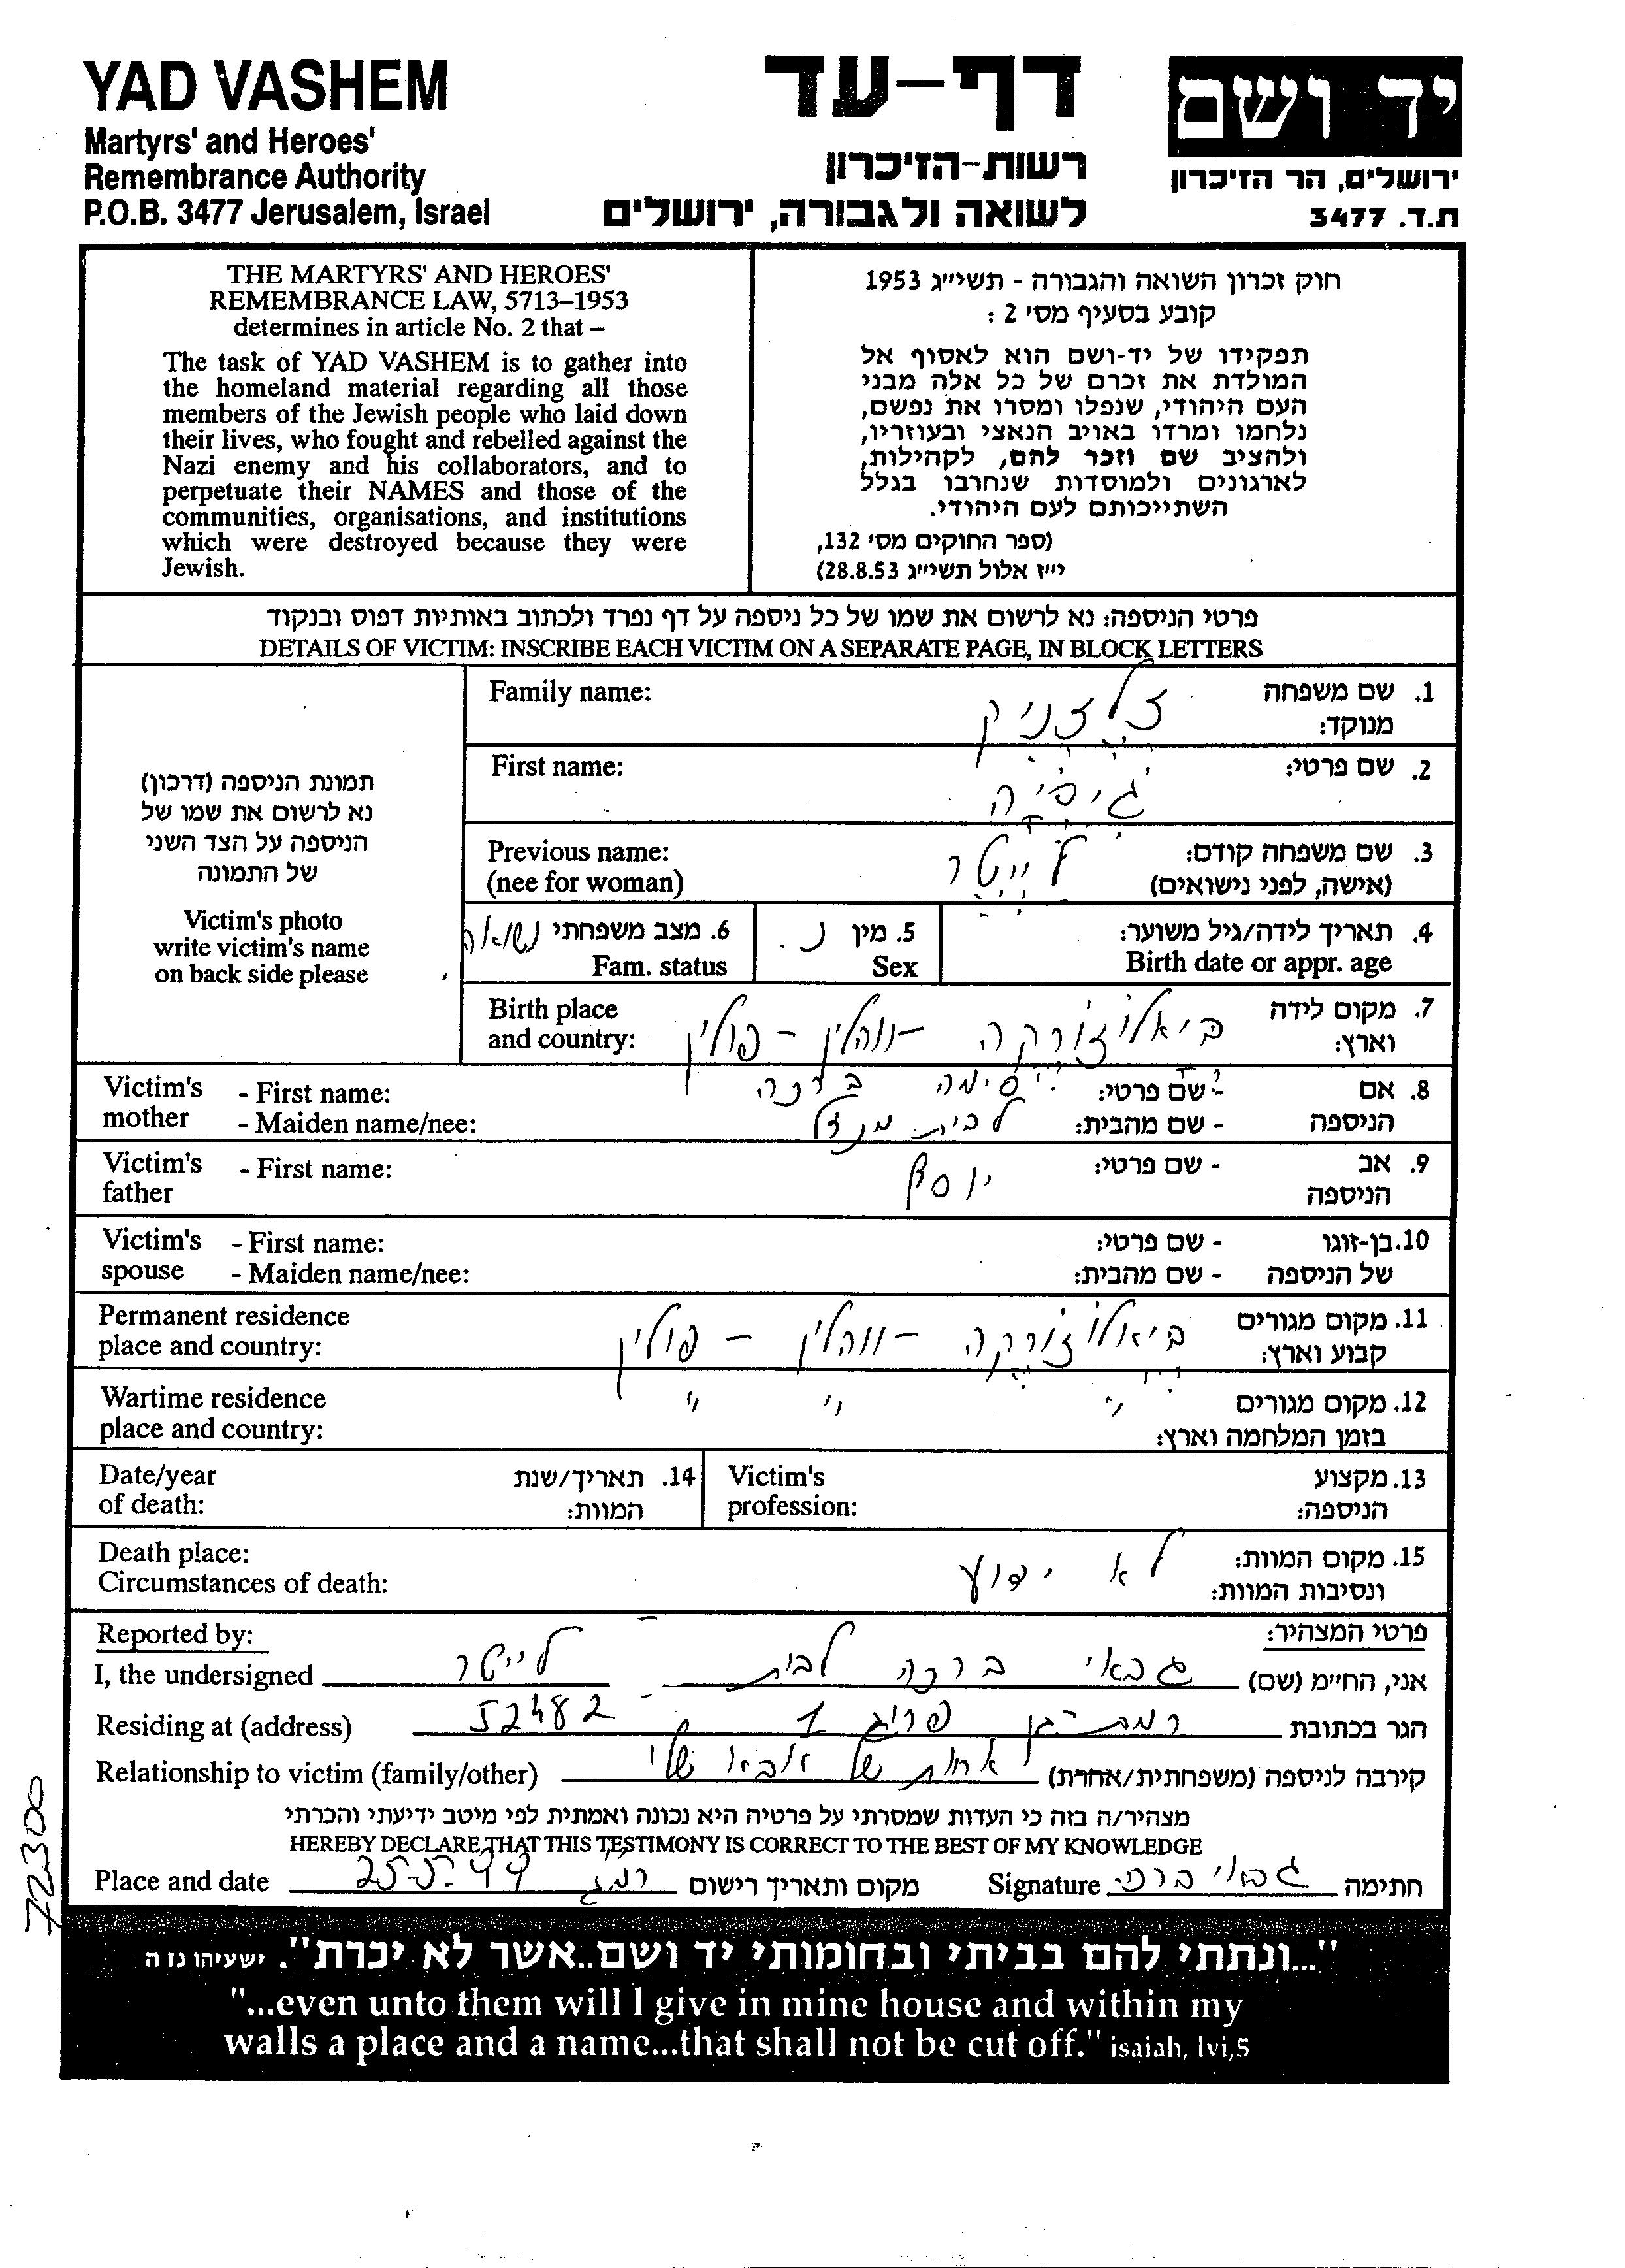 YAD VASHEM
Martyrs' and Heroes'
Remembrance Authority
P.O.B. 3477 Jerusalem, Israel
דף-עד
רשות-הזיכרון
לשואה ולגבורה, ירושלים
יד ושם
ירושלים, הר הזיכרון
ת.ד. 3477
THE MARTYRS' AND HEROES'
REMEMBRANCE LAW, 5713–1953
determines in article No. 2 that –
The task of YAD VASHEM is to gather into
the homeland material regarding all those
members of the Jewish people who laid down
their lives, who fought and rebelled against the
Nazi enemy and his collaborators, and to
perpetuate their NAMES and those of the
communities, organisations, and institutions
which were destroyed because they were
Jewish.
חוק זכרון השואה והגבורה - תשי״ג 1953
קובע בסעיף מס׳ 2 :
תפקידו של יד-ושם הוא לאסוף אל
המולדת את זכרם של כל אלה מבני
העם היהודי, שנפלו ומסרו את נפשם,
נלחמו ומרדו באויב הנאצי ובעוזריו,
ולהציב שם וזכר להם, לקהילות,
לארגונים ולמוסדות שנחרבו בגלל
השתייכותם לעם היהודי.
(ספר החוקים מס׳ 132,
י״ז אלול תשי״ג 28.8.53)
פרטי הניספה: נא לרשום את שמו של כל ניספה על דף נפרד ולכתוב באותיות דפוס ובנקוד
DETAILS OF VICTIM: INSCRIBE EACH VICTIM ON A SEPARATE PAGE, IN BLOCK LETTERS
תמונת הניספה (דרכון)
נא לרשום את שמו של
הניספה על הצד השני
של התמונה
Victim's photo
write victim's name
on back side please
Family name: זלזניק 1. שם משפחה
מנוקד:
First name: 2. שם פרטי:
Previous name: לייטר 3. שם משפחה קודם:
(nee for woman) (אישה, לפני נישואים)
4. תאריך לידה/גיל משוער:
Birth date or appr. age
5. מין נ.
Sex
6. מצב משפחתי נשואה
Fam. status
Birth place ביאלוזורקה - ווהלין - פולין 7. מקום לידה
and country: וארץ:
Victim's - First name: סימה ברכה - שם פרטי: 8. אם
mother - Maiden name/nee: לבית מנדל - שם מהבית: הניספה
Victim's - First name: יוסף - שם פרטי: 9. אב
father הניספה
Victim's - First name: - שם פרטי: 10. בן-זוגו
spouse - Maiden name/nee: - שם מהבית: של הניספה
Permanent residence ביאלוזורקה - ווהלין - פולין 11. מקום מגורים
place and country: קבוע וארץ:
Wartime residence " " " 12. מקום מגורים
place and country: בזמן המלחמה וארץ:
Date/year 14. תאריך/שנת
of death: המוות:
Victim's 13. מקצוע
profession: הניספה:
Death place: לא ידוע 15. מקום המוות:
Circumstances of death: ונסיבות המוות:
Reported by: פרטי המצהיר:
I, the undersigned גבאי ברכה לבית לייטר אני, החי״מ (שם)
Residing at (address) רמת-גן פריג 1 52482 הגר בכתובת
Relationship to victim (family/other) אחות של אבא שלי קירבה לניספה (משפחתית/אחרת)
מצהיר/ה בזה כי העדות שמסרתי על פרטיה היא נכונה ואמתית לפי מיטב ידיעתי והכרתי
HEREBY DECLARE THAT THIS TESTIMONY IS CORRECT TO THE BEST OF MY KNOWLEDGE
Place and date 25.5.99 ר״ג מקום ותאריך רישום Signature גבאי ברכה חתימה
72300
"...ונתתי להם בביתי ובחומותי יד ושם..אשר לא יכרת". ישעיהו נו ה
"...even unto them will I give in mine house and within my
walls a place and a name...that shall not be cut off." isaiah, lvi,5